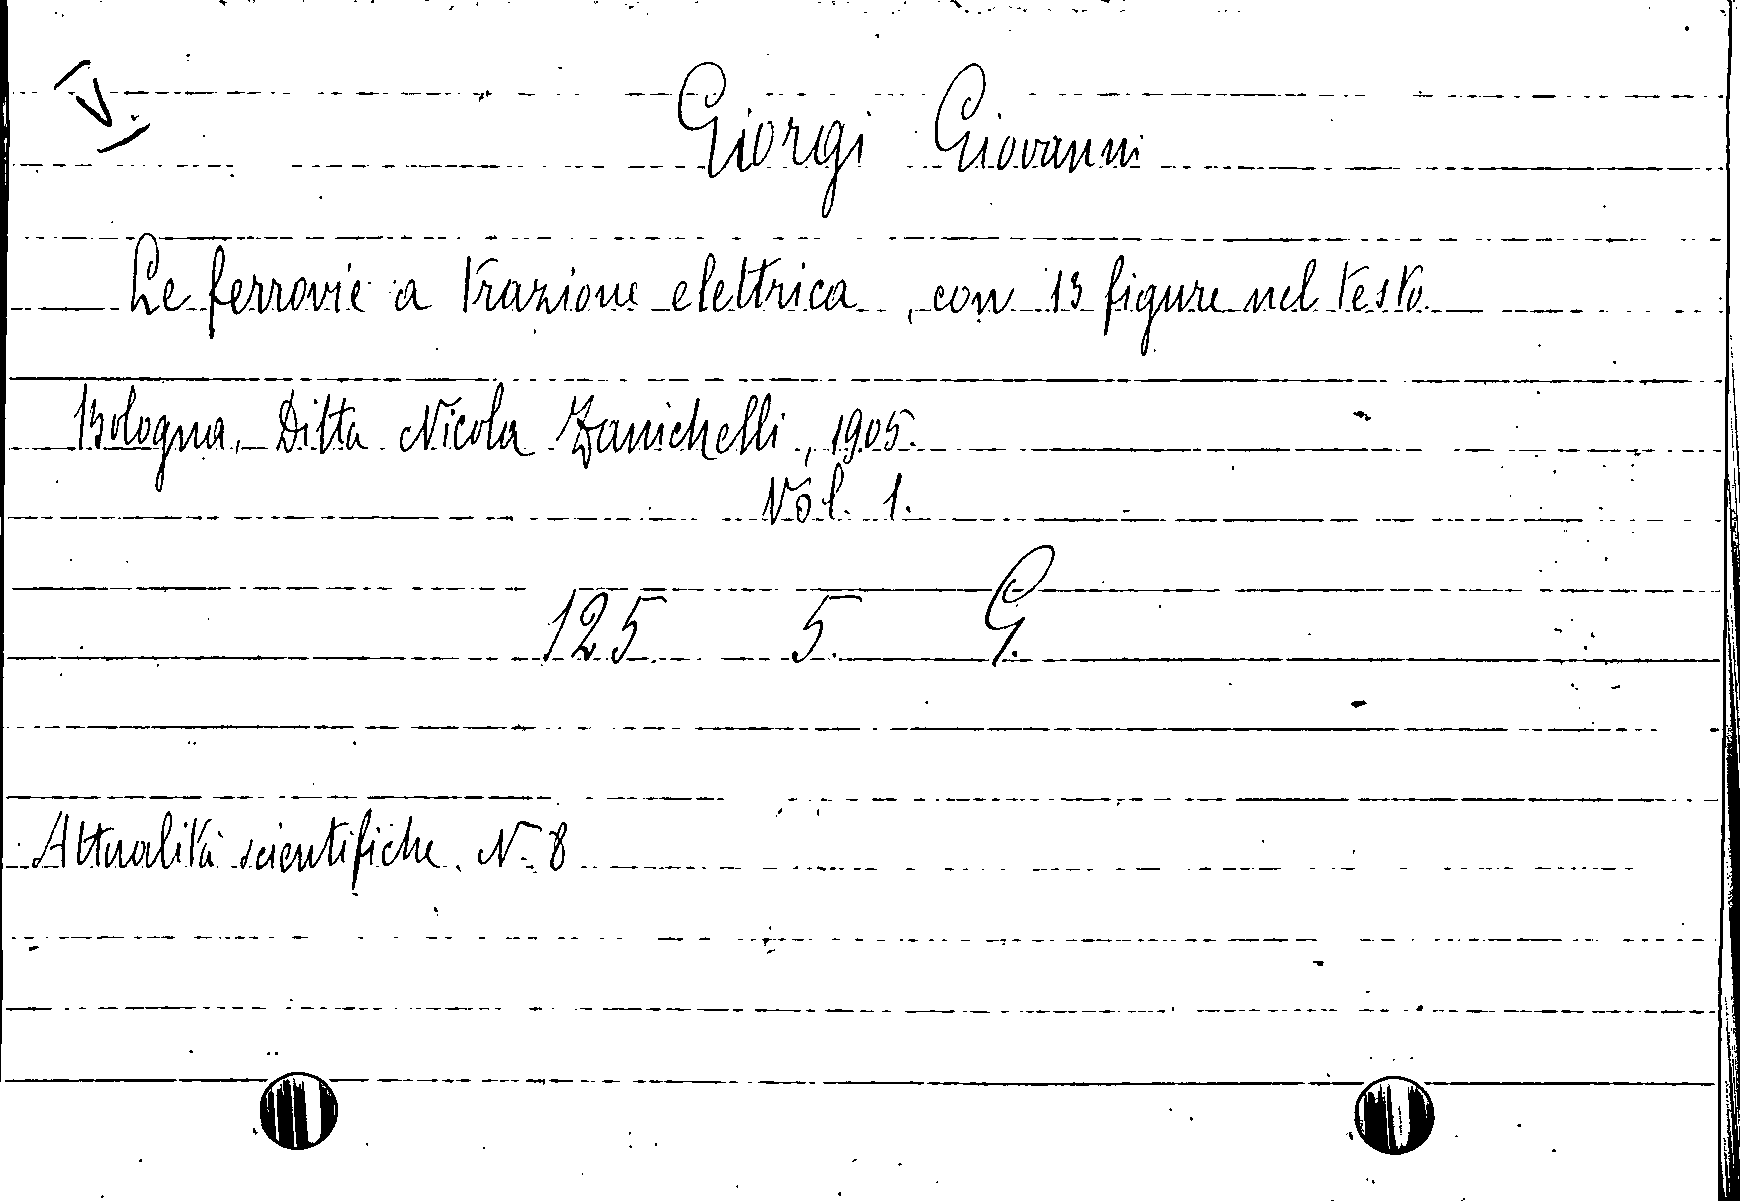 V.
Giorgi Giovanni
Le ferrovie a trazione elettrica, con 13 figure nel testo.
Bologna, Ditta Nicola Zanichelli, 1905.
Vol. 1.
125 5. G.
Attualità scientifiche. N. 8